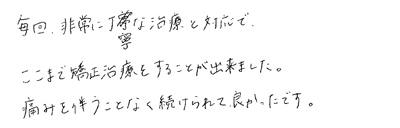 毎回、非常に丁寧な治療と対応で、
ここまで矯正治療をすることが出来ました。
痛みを伴うことなく続けられて良かったです。